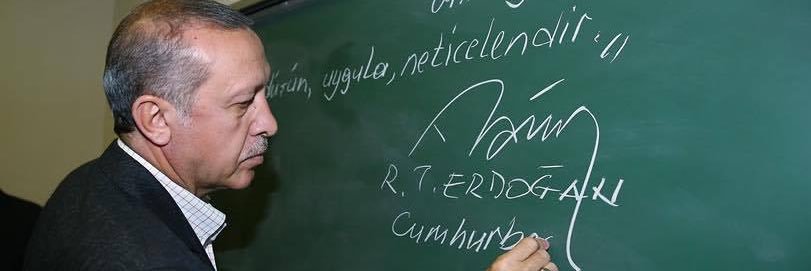 düşün, uygula, neticelendir."
R. T. ERDOĞAN
Cumhurba